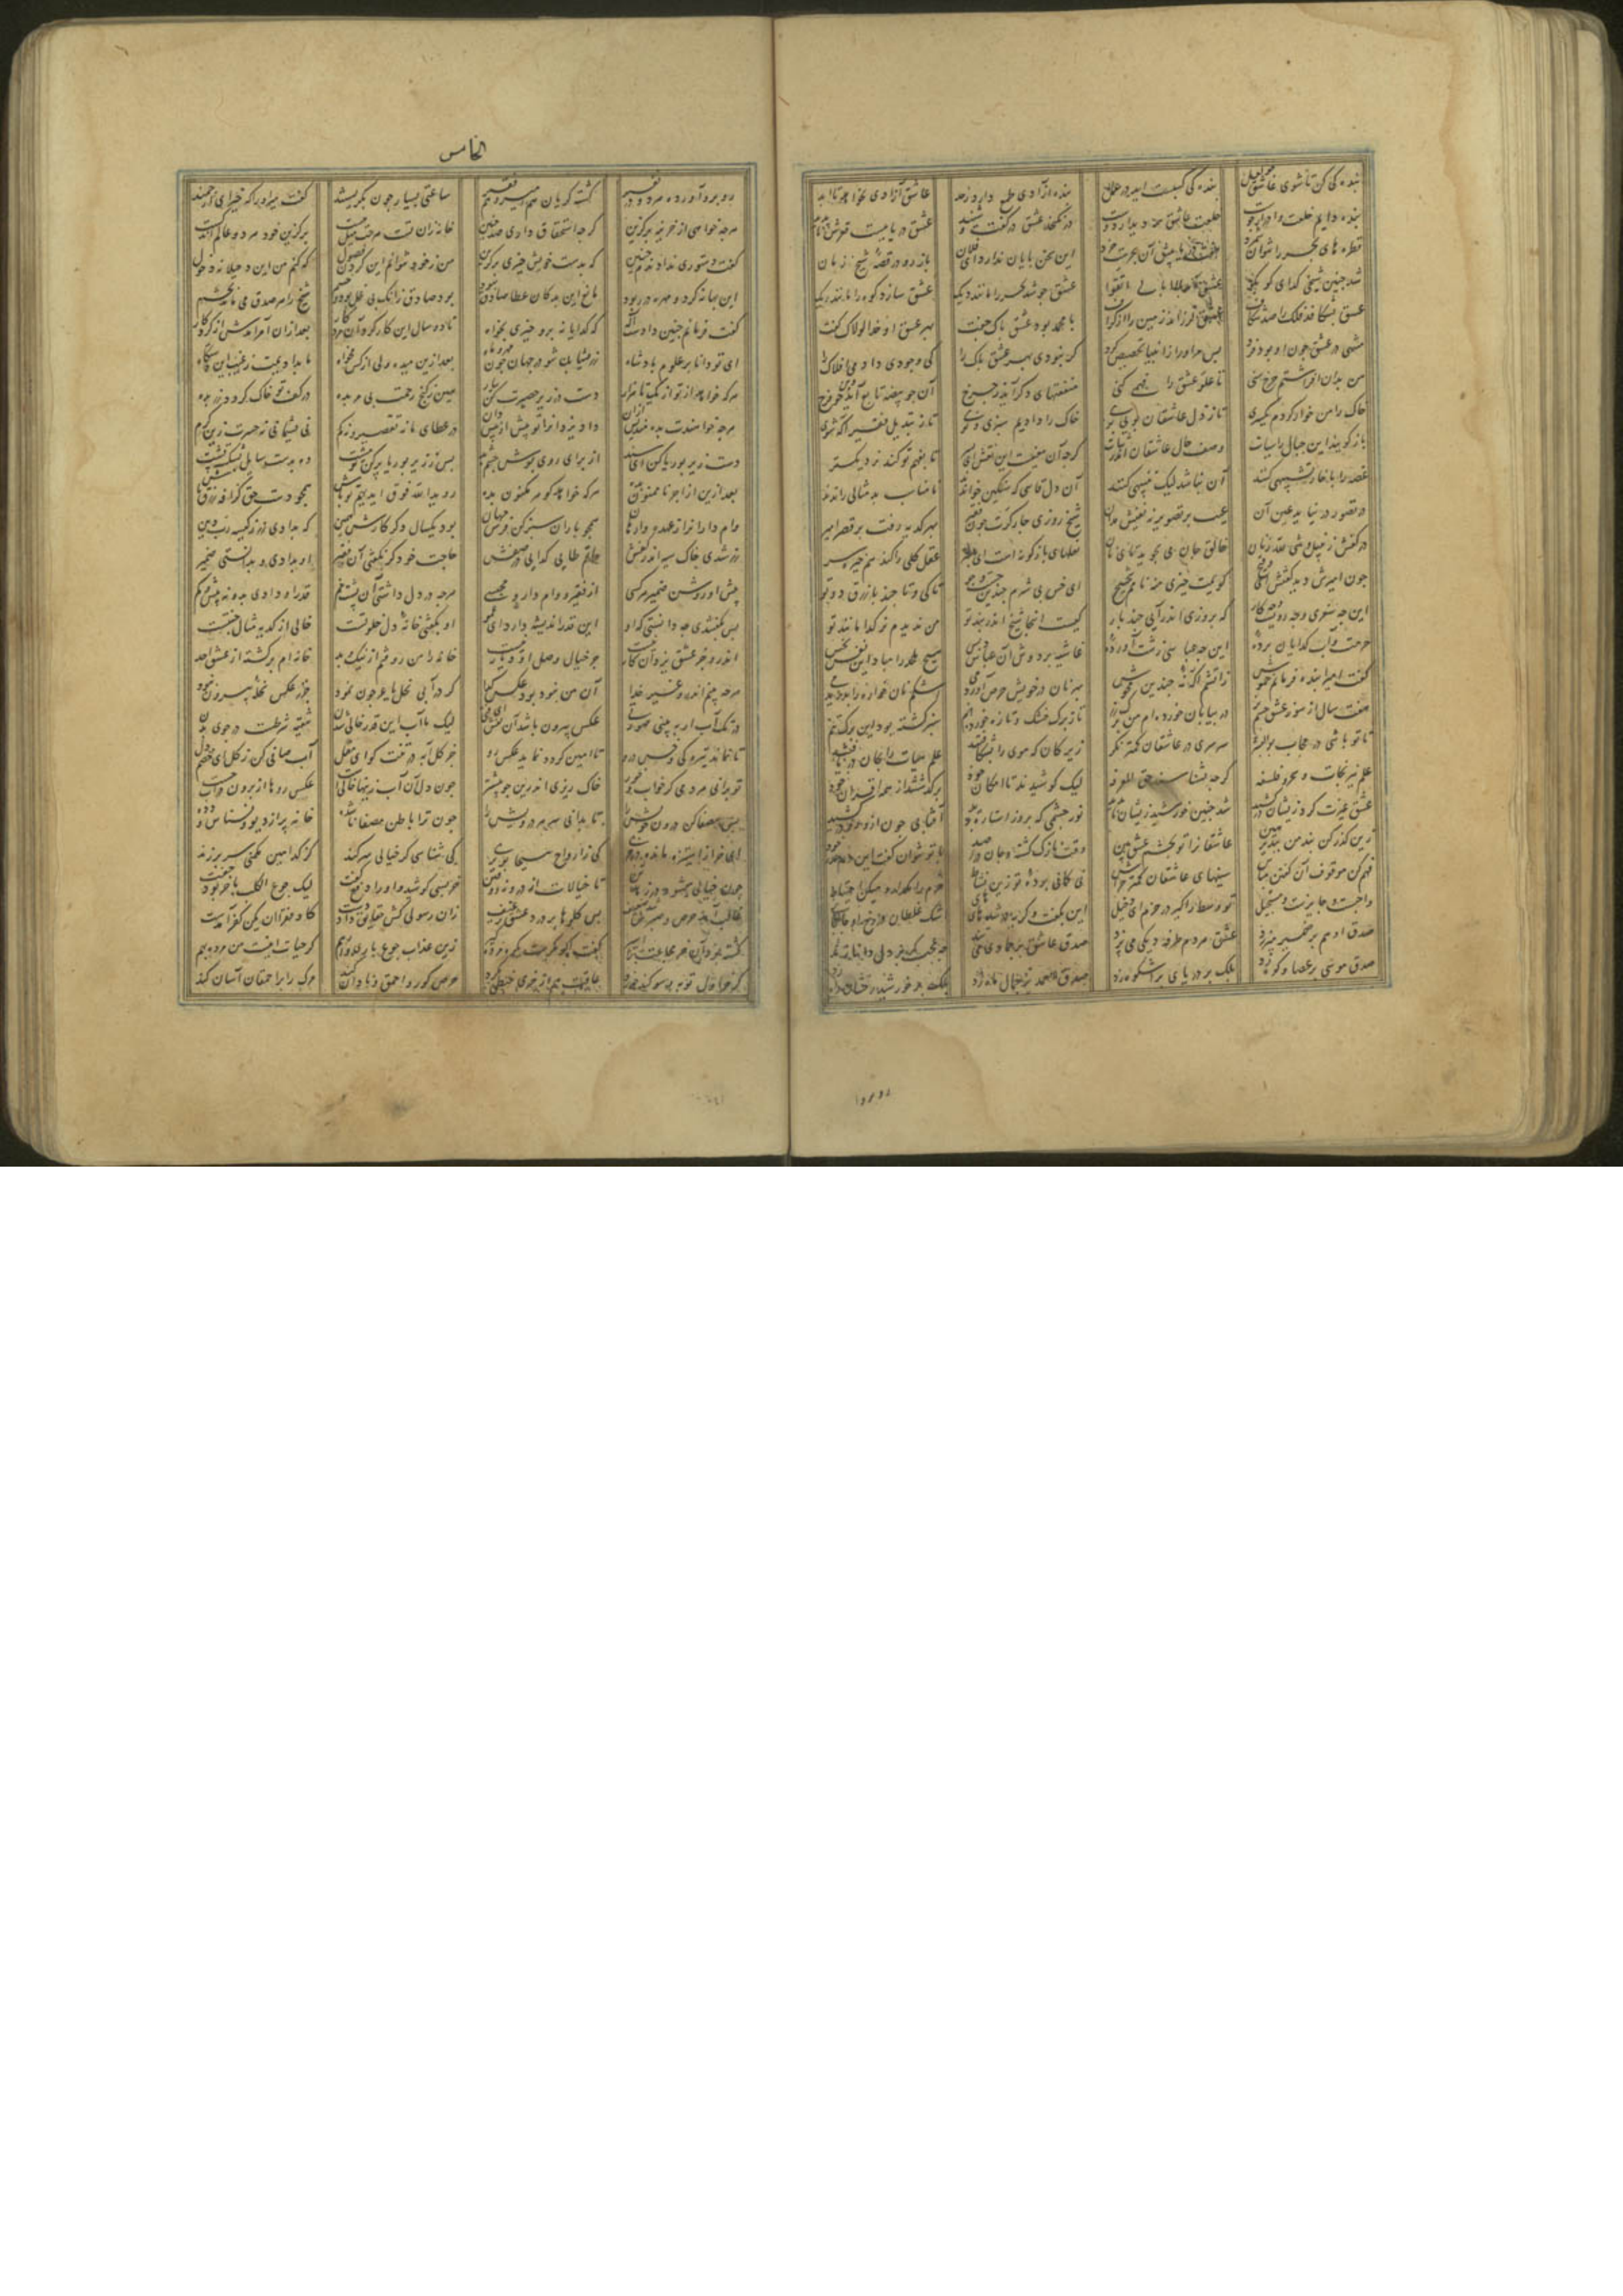 بنده کی کن تا شوی عاشق لعل بنده کی کسبست آید در عمل بنده آزادی طمع دارد ز جد عاشق آزادی نخواهد تا ابد
بنده دایم خلعت و ادرار جوست خلعت عاشق همه دیدار دوست در نگنجد عشق در گفت و شنید عشق دریاییست قعرش ناپدید
قطره های بحر را نتوان شمرد هفت دریا پیش آن بحرست خرد این سخن پایان ندارد ای فلان باز رو در قصه شیخ زمان
شد چنین شیخی گدای کو بکو عشق آمد لاابالی اتقوا عشق جوشد بحر را مانند دیک عشق سازد کوه را مانند ریک
عشق بشکافد فلک را صد شکاف عشق لرزاند زمین را از گزاف با محمد بود عشق پاک جفت بهر عشق او خدا لولاک گفت
منتهی در عشق چون او بود فرد پس مر او را ز انبیا تخصیص کرد گر نبودی بهر عشق پاک را کی وجودی دادمی افلاک را
من بدان افراشتم چرخ سنی تا علو عشق را فهمی کنی منفعتهای دگر آید ز چرخ آن چو بیضه تابع آید این چو فرخ
خاک را من خوار کردم یکسری تا ز ذل عاشقان بویی بری خاک را دادیم سبزی و نوی تا ز تبدیل فقیر آگه شوی
باز گویند این جبال راسیات وصف حال عاشقان اندر ثبات گرچه آن معنیست این نقش ای پسر تا بفهم تو کند نزدیکتر
غصه را با خار تشبیهی کنند آن نباشد لیک تنبیهی کنند آن دل قاسی که سنگین خواندند نامناسب بد مثالی راندند
در تصور در نیاید عین آن عیب بر تصویر نه نفیش مدان شیخ روزی چار کرت چون فقیر بهر کدیه رفت بر قصر امیر
در کفش زنبیل و شی لله زنان خالق جان می بجوید تای نان نعلهای بازگونه است ای پسر عقل کلی را کند هم خیره سر
چون امیرش دید گفتش ای وقیح گویمت چیزی منه نامم شحیح ای خس بی شرم چندین جست و جو تا کی و تا چند با زرق دو تو
این چه سغری و چه رویست و چه کار که بروزی اندر آیی چند بار کیست اینجا شیخ اندر بند تو من ندیدم نر گدا مانند تو
حرمت و آب گدایان برده این چه عباسی زشت آورده غاشیه بر دوش آن عباس دبس هیچ ملحد را مباد این نفس نحس
گفت امیرا بنده فرمانم خموش ز آتشم آگه نه چندین مجوش بهر نان در خویش حرص ار دیدمی اشکم نان خواره را بدریدمی
هفت سال از سوز عشق جسم پز در بیابان خورده ام من برگ رز تا ز برگ خشک و تازه خوردنم سبز گشته بود این رنگ تنم
تا تو باشی در حجاب بوالبشر سرسری در عاشقان کمتر نگر زیرکان که موی را بشکافتند علم هیات را بجان دریافتند
علم نیرنجات و سحر و فلسفه گرچه نشناسند حق المعرفه لیک کوشیدند تا امکان خود برگذشتند از همه اقران خود
عشق غیرت کرد و زیشان در کشید شد چنین خورشید زیشان ناپدید نور چشمی که بروز استاره دید آفتابی چون ازو رو در کشید
زین گذر کن پند من بپذیر هین عاشقان را تو بچشم عشق بین وقت نازک گشته و جان در رصد با تو نتوان گفت این دم عذر خود
فهم کن موقوف آن گفتن مباش سینهای عاشقان کمتر خراش نی گمانی برده تو زین نشاط حزم را مگذار و میکن احتیاط
واجبست و جایزست و مستحیل تو وسط را گیر در حزم ای دخیل این بگفت و گریه در شد های های اشک غلطان بر رخ او جای جای
صدق او هم بر ضمیر میر زد عشق هر دم طرفه دیگی می پزد صدق عاشق بر جمادی می تند چه عجب گر بر دل دانا زند
صدق موسی بر عصا و کوه زد بلک بر دریای پر اشکوه زد صدق احمد بر جمال ماه زد بلک بر خورشید رخشان راه زد
روبرو
الخامس
رو برو آورده هر دو در نفیر گشته گریان هم امیر و هم فقیر ساعتی بسیار چون بگریستند گفت میر او را که خیز ای ارجمند
هرچه خواهی از خزینه برگزین گرچه استحقاق داری صد چنین خانه زان تست هرچت میل هست برگزین خود هر دو عالم اندکست
گفت دستوری ندادندم چنین که بدست خویش چیزی برگزین من ز خود نتوانم این کردن فضول که کنم من این دخیلانه دخول
این بهانه کرد و مهره در ربود مانع این بد کان عطا صادق نبود بود صادق زانک بی غل بود و خشم شیخ را هر صدق می نامد بچشم
گفت فرمانم چنین دادست اله که گدایانه برو چیزی بخواه تا دو سال این کار کرد آن مرد کار بعد از آن امر آمدش از کردگار
ای تو دانا بر علوم پادشاه در جهان چون بعد ازین میده ولی از کس مخواه ما بدادیمت ز غیب این دستگاه
هرکه خواهد از تو از یک تا هزار دست در زیر حصیرت کن برآر هین ز گنج رحمت بی مر بده در کف تو خاک گردد زر بده
هرچه خواهندت بده مندیش از آن داد یزدان را تو بیش از بیش دان در عطای ما نه تقصیر و نه کم نی پشیمانی نه حسرت زین کرم
دست زیر بوریا کن ای سند از برای روی پوش چشم بد پس ز زیر بوریا پر کن تو مشت ده بدست سایل بشکسته پشت
بعد ازین از اجر ناممنون بده هرکه خواهد گوهر مکنون بده رو یدالله فوق ایدیهم تو باش همچو دست حق گزافه رزق پاش
وام داران را ز عهده وارهان همچو باران سبز کن فرش جهان بود یکسال دگر کارش همین که بدادی زر ز کیسه رب دین
زر شدی خاک سیه اندر کفش حاتم طایی گدایی در صفش حاجت خود گر نگفتی آن فقیر او بدادی و بدانستی ضمیر
پیش او روشن ضمیر هر کسی از فقیر و وام دار و محبسی هرچه در دل داشتی آن پشت خم قدر او دادی بدو نه بیش و کم
پس بگفتندی چه دانستی که او این قدر اندیشه دارد ای عمو او بگفتی خانه دل خلوتست خالی از کدیه مثال جنتست
اندرو جز عشق یزدان کار نیست جز خیال وصل او دیار نیست خانه را من روفتم از نیک و بد خانه ام پر گشته از عشق احد
هرچه بینم اندرو غیر خدا آن من نبود بود عکس گدا گر در آبی نخل یا عرجون نمود جز ز عکس نخله بیرون نبود
در تک آب ار ببینی صورتی عکس بیرون باشد آن نقش ای فتی لیک تا آب این قذر خالی شدن تنقیه شرطست در جوی بدن
تا نماند تیرگی و خس درو تا امین گردد نماید عکس رو جز گلابه در تنت کو ای مقل آب صافی کن ز گل ای خصم دل
تو برانی هر دمی کز خواب و خور خاک ریزی اندرین جو بیشتر چون دل آن آب زینها خالیست عکس روها از برون در آب جست
پس مصفا کن درون خویش را تا بدانی سر هر درویش را چون ترا باطن مصفا ناشده خانه پر از دیو و نسناس و دده
ای خری ز استیزه مانده در خری کی ز ارواح مسیحا بو بری کی شناسی گر خیالی سر کند کز کدامین مکمنی سر بر زند
چون خیالی میشود در زهد تن تا خیالات از درونه روفتن خر بسی کوشید و او را دفع گفت لیک جوع الکلب با خر بود جفت
غالب آمد حرص و صبرش شد ضعیف بس گلوها برد در عشق رغیف زان رسولی کش حقایق داد دست کاد فقر ان یکن کفر آمدست
گشته بود آن خر مجاعت را اسیر گفت اگر مکرست یکره مرده گیر زین عذاب جوع باری وارهم گر حیات اینست من مرده بهم
گر خر اول توبه و سوگند خورد عاقبت هم از خری خبطی بکرد حرص کور و احمق و نادان کند مرگ را بر احمقان آسان کند